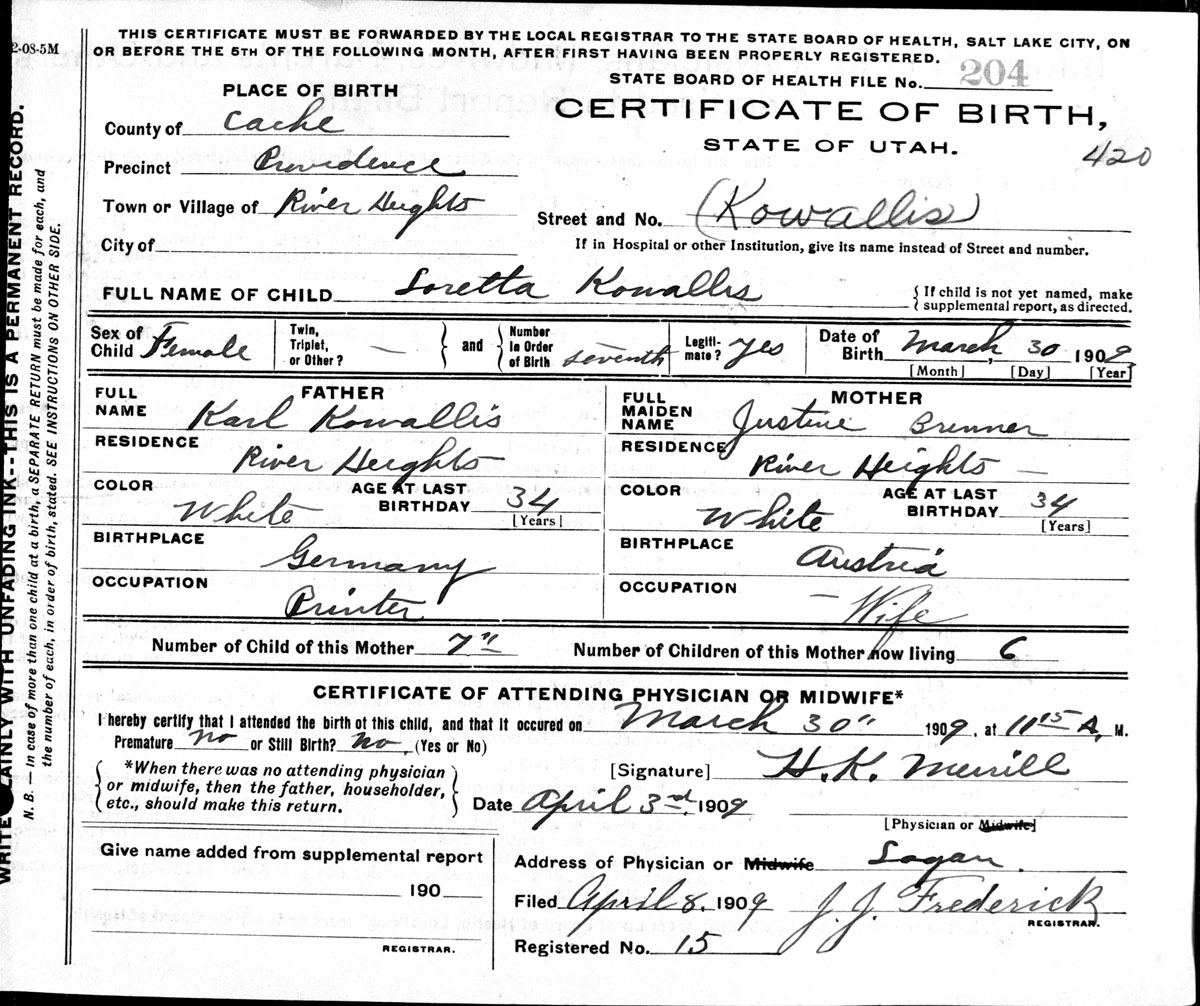 2-08-5M
THIS CERTIFICATE MUST BE FORWARDED BY THE LOCAL REGISTRAR TO THE STATE BOARD OF HEALTH, SALT LAKE CITY, ON
OR BEFORE THE 5TH OF THE FOLLOWING MONTH, AFTER FIRST HAVING BEEN PROPERLY REGISTERED.
STATE BOARD OF HEALTH FILE No. 204
PLACE OF BIRTH
CERTIFICATE OF BIRTH,
STATE OF UTAH.
420
County of Cache
Precinct Providence
Town or Village of River Heights
Street and No. (Kowallis)
City of
If in Hospital or other Institution, give its name instead of Street and number.
FULL NAME OF CHILD Loretta Kowallis
{ If child is not yet named, make
supplemental report, as directed.
Sex of Child Female
Twin, Triplet, or Other? —
and
Number in Order of Birth seventh
Legiti-mate? Yes
Date of Birth March, 30 1909
[Month] [Day] [Year]
FATHER
FULL NAME Karl Kowallis
RESIDENCE River Heights
COLOR White
AGE AT LAST BIRTHDAY 34
[Years]
BIRTHPLACE Germany
OCCUPATION Printer
MOTHER
FULL MAIDEN NAME Justine Brenner
RESIDENCE River Heights —
COLOR White
AGE AT LAST BIRTHDAY 34
[Years]
BIRTHPLACE Austria
OCCUPATION — Wife
Number of Child of this Mother 7"
Number of Children of this Mother now living 6
CERTIFICATE OF ATTENDING PHYSICIAN OR MIDWIFE*
I hereby certify that I attended the birth of this child, and that it occured on March 30" 1909, at 11 15 A. M.
Premature no or Still Birth? no, (Yes or No)
*When there was no attending physician
or midwife, then the father, householder,
etc., should make this return.
[Signature] H. K. Merrill
Date April 3rd. 1909
[Physician or Midwife]
Give name added from supplemental report
190
REGISTRAR.
Address of Physician or Midwife Logan.
Filed April 8. 1909 J. J. Frederick
REGISTRAR.
Registered No. 15
WRITE PLAINLY WITH UNFADING INK--THIS IS A PERMANENT RECORD.
N. B. — In case of more than one child at a birth, a SEPARATE RETURN must be made for each, and
the number of each, in order of birth, stated. SEE INSTRUCTIONS ON OTHER SIDE.